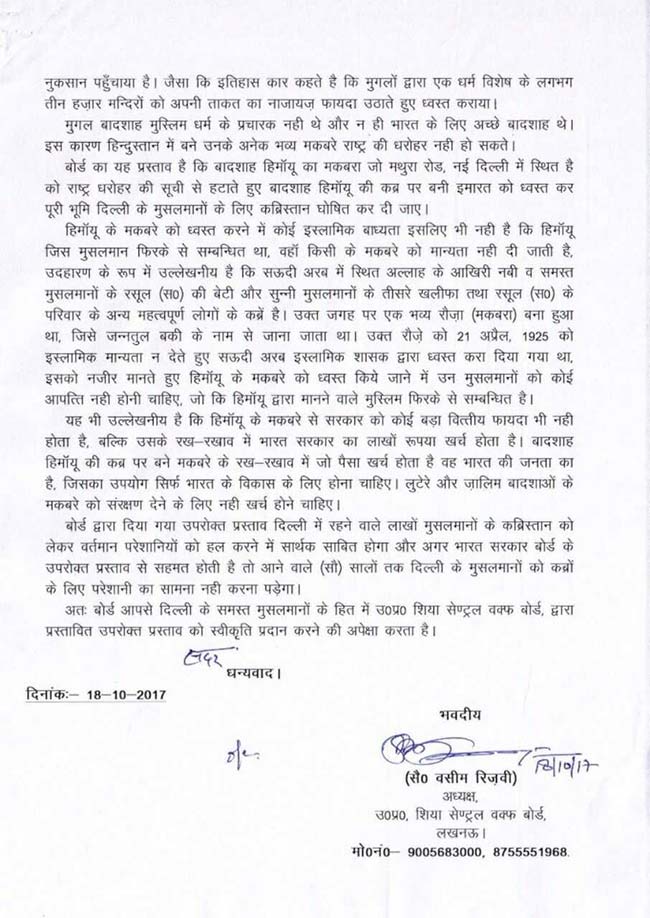 नुकसान पहुँचाया है। जैसा कि इतिहास कार कहते है कि मुगलों द्वारा एक धर्म विशेष के लगभग
तीन हज़ार मन्दिरों को अपनी ताकत का नाजायज़ फायदा उठाते हुए ध्वस्त कराया।
मुगल बादशाह मुस्लिम धर्म के प्रचारक नही थे और न ही भारत के लिए अच्छे बादशाह थे।
इस कारण हिन्दुस्तान में बने उनके अनेक भव्य मकबरे राष्ट्र की धरोहर नही हो सकते।
बोर्ड का यह प्रस्ताव है कि बादशाह हिमॉयू का मकबरा जो मथुरा रोड, नई दिल्ली में स्थित है
को राष्ट्र धरोहर की सूची से हटाते हुए बादशाह हिमॉयू की कब्र पर बनी इमारत को ध्वस्त कर
पूरी भूमि दिल्ली के मुसलमानों के लिए कब्रिस्तान घोषित कर दी जाए।
हिमॉयू के मकबरे को ध्वस्त करने में कोई इस्लामिक बाध्यता इसलिए भी नही है कि हिमॉयू
जिस मुसलमान फिरके से सम्बन्धित था, वहाँ किसी के मकबरे को मान्यता नही दी जाती है,
उदहारण के रूप में उल्लेखनीय है कि सऊदी अरब में स्थित अल्लाह के आखिरी नबी व समस्त
मुसलमानों के रसूल (स०) की बेटी और सुन्नी मुसलमानों के तीसरे खलीफा तथा रसूल (स०) के
परिवार के अन्य महत्वपूर्ण लोगों के कब्रें है। उक्त जगह पर एक भव्य रौज़ा (मकबरा) बना हुआ
था, जिसे जन्नतुल बकी के नाम से जाना जाता था। उक्त रौज़े को 21 अप्रैल, 1925 को
इस्लामिक मान्यता न देते हुए सऊदी अरब इस्लामिक शासक द्वारा ध्वस्त करा दिया गया था,
इसको नजीर मानते हुए हिमॉयू के मकबरे को ध्वस्त किये जाने में उन मुसलमानों को कोई
आपत्ति नही होनी चाहिए, जो कि हिमॉयू द्वारा मानने वाले मुस्लिम फिरके से सम्बन्धित है।
यह भी उल्लेखनीय है कि हिमॉयू के मकबरे से सरकार को कोई बड़ा वित्तीय फायदा भी नही
होता है, बल्कि उसके रख–रखाव में भारत सरकार का लाखों रूपया खर्च होता है। बादशाह
हिमॉयू की कब्र पर बने मकबरे के रख–रखाव में जो पैसा खर्च होता है वह भारत की जनता का
है, जिसका उपयोग सिर्फ भारत के विकास के लिए होना चाहिए। लुटेरे और ज़ालिम बादशाओं के
मकबरे को संरक्षण देने के लिए नही खर्च होने चाहिए।
बोर्ड द्वारा दिया गया उपरोक्त प्रस्ताव दिल्ली में रहने वाले लाखों मुसलमानों के कब्रिस्तान को
लेकर वर्तमान परेशानियों को हल करने में सार्थक साबित होगा और अगर भारत सरकार बोर्ड के
उपरोक्त प्रस्ताव से सहमत होती है तो आने वाले (सौ) सालों तक दिल्ली के मुसलमानों को कब्रों
के लिए परेशानी का सामना नही करना पड़ेगा।
अतः बोर्ड आपसे दिल्ली के समस्त मुसलमानों के हित में उ०प्र० शिया सेण्ट्रल वक्फ बोर्ड, द्वारा
प्रस्तावित उपरोक्त प्रस्ताव को स्वीकृति प्रदान करने की अपेक्षा करता है।
सादर
धन्यवाद।
दिनांकः– 18–10–2017
भवदीय
18/10/17
(सै० वसीम रिज़वी)
अध्यक्ष,
उ०प्र०, शिया सेण्ट्रल वक्फ बोर्ड,
लखनऊ।
मो०नं०– 9005683000, 8755551968.